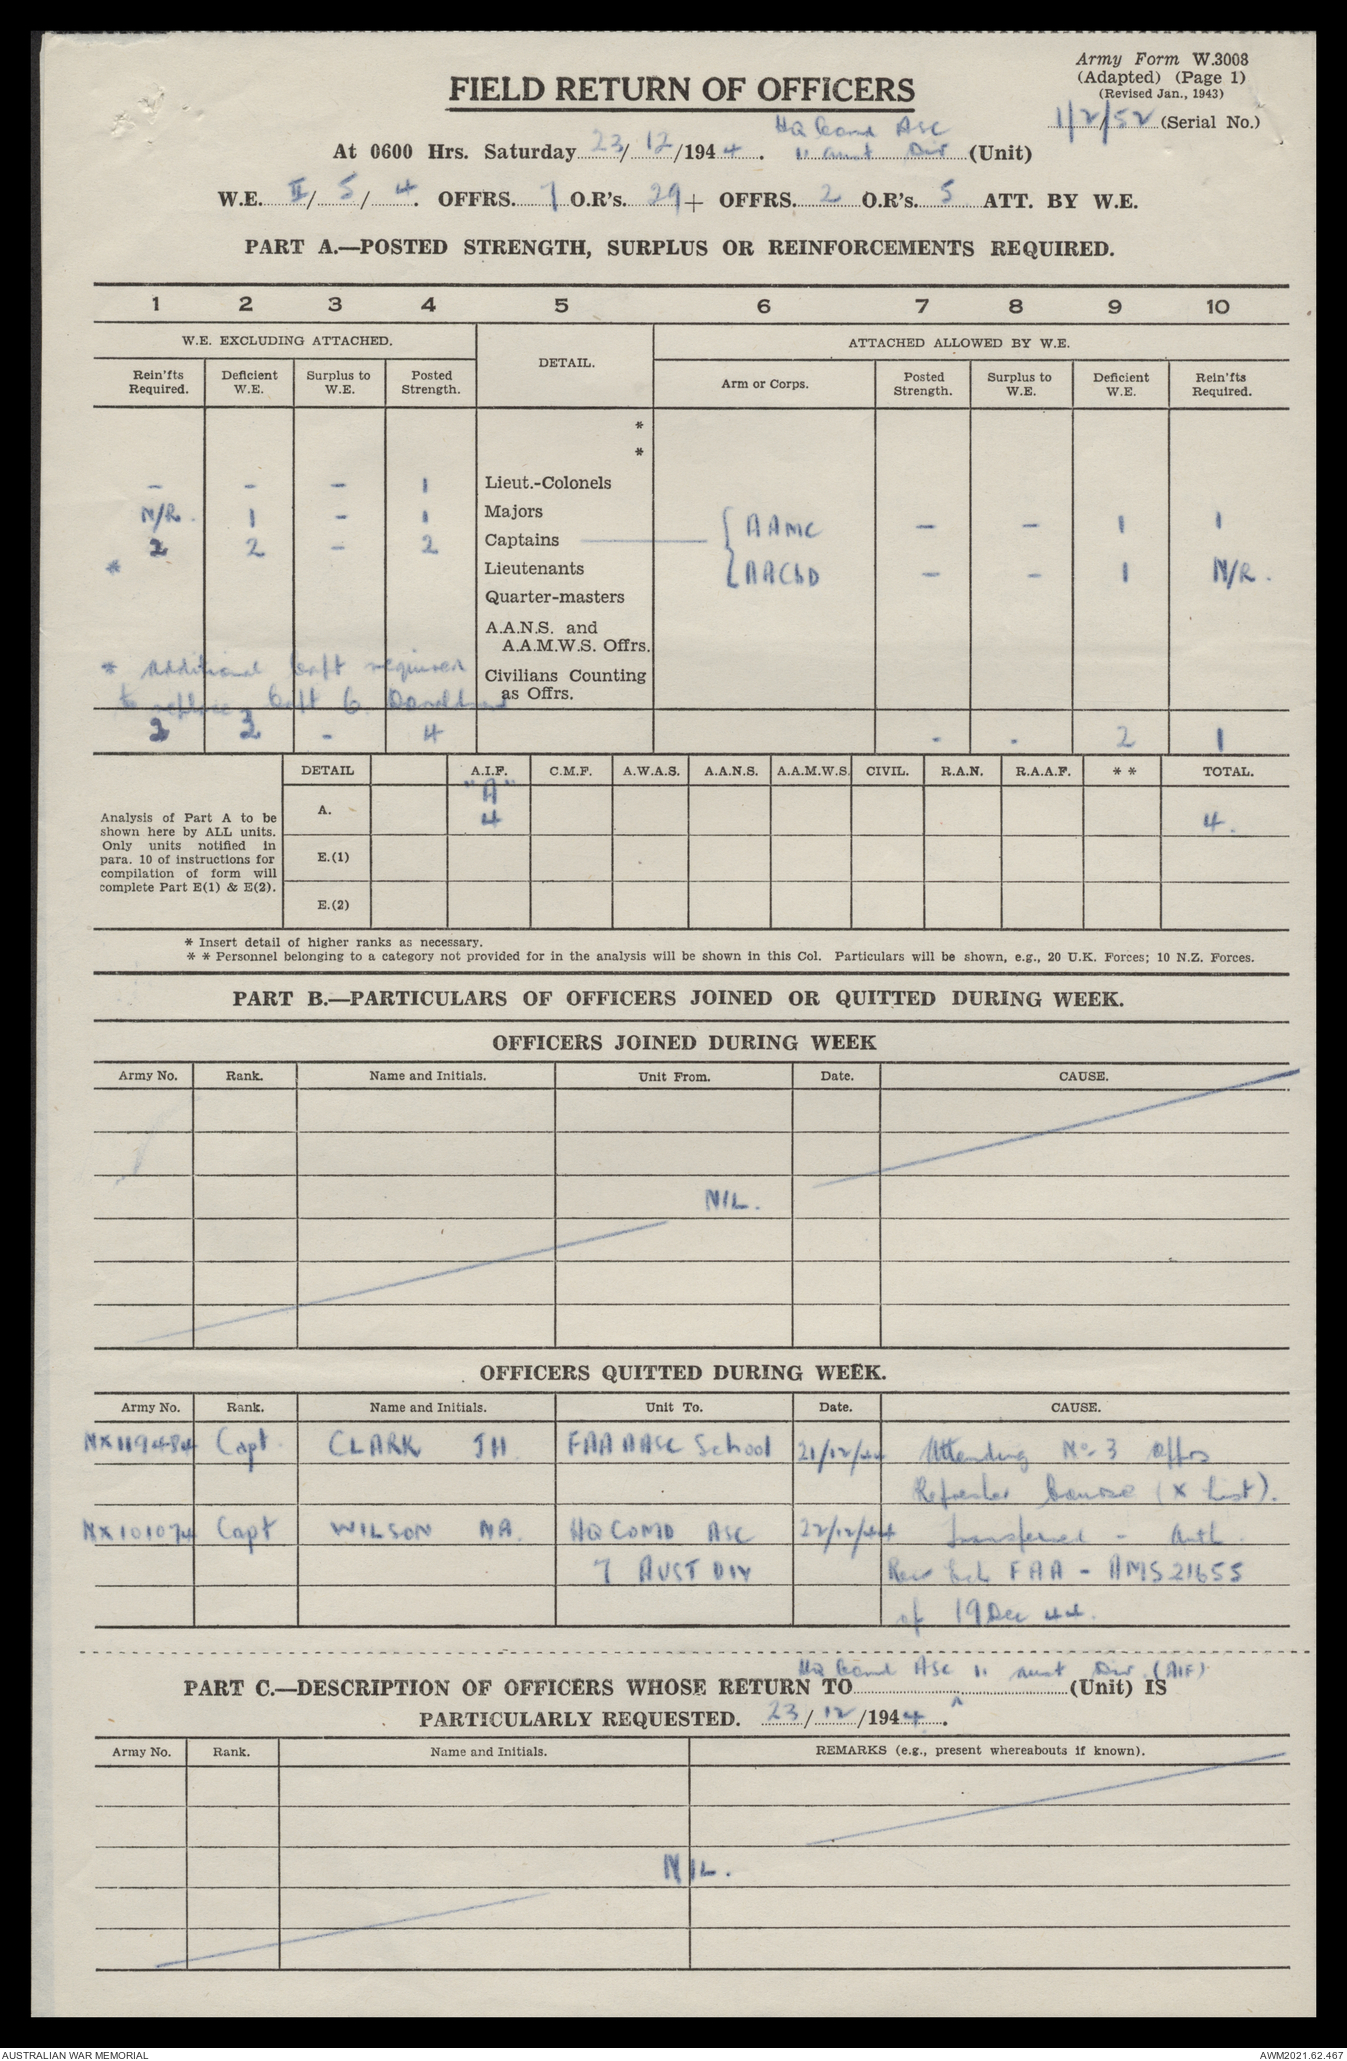 Army Form W.3008
(Adapted) (Page 1)
(Revised Jan., 1943)
FIELD RETURN OF OFFICERS
1/2/52 (Serial No.)
HQ Comd ASC
At 0600 Hrs. Saturday 23/12/1944. 11 Aust Div (Unit)
W.E. II/5/4. OFFRS. 7 O.R's. 29 + OFFRS. 2 O.R's. 5 ATT. BY W.E.
PART A.—POSTED STRENGTH, SURPLUS OR REINFORCEMENTS REQUIRED.
1 2 3 4 5 6 7 8 9 10
W.E. EXCLUDING ATTACHED. DETAIL. ATTACHED ALLOWED BY W.E.
Rein'fts Required. Deficient W.E. Surplus to W.E. Posted Strength. Arm or Corps. Posted Strength. Surplus to W.E. Deficient W.E. Rein'fts Required.
*
*
– – – 1 Lieut.-Colonels
N/R. 1 – 1 Majors
{ AAMC – – 1 1
2 2 – 2 Captains
* Lieutenants
AAChD – – 1 N/R.
Quarter-masters
A.A.N.S. and
A.A.M.W.S. Offrs.
* Additional Capt required
Civilians Counting
to replace Capt G. Donaldson
as Offrs.
2 3 - 4 - - 2 1
DETAIL A.I.F. C.M.F. A.W.A.S. A.A.N.S. A.A.M.W.S. CIVIL. R.A.N. R.A.A.F. * * TOTAL.
"A"
A. 4 4.
Analysis of Part A to be
shown here by ALL units.
Only units notified in
para. 10 of instructions for
compilation of form will
complete Part E(1) & E(2).
E.(1)
E.(2)
* Insert detail of higher ranks as necessary.
* * Personnel belonging to a category not provided for in the analysis will be shown in this Col. Particulars will be shown, e.g., 20 U.K. Forces; 10 N.Z. Forces.
PART B.—PARTICULARS OF OFFICERS JOINED OR QUITTED DURING WEEK.
OFFICERS JOINED DURING WEEK
Army No. Rank. Name and Initials. Unit From. Date. CAUSE.
NIL.
OFFICERS QUITTED DURING WEEK.
Army No. Rank. Name and Initials. Unit To. Date. CAUSE.
NX119484 Capt. CLARK JH. FAAAASC School 21/12/44 Attending No. 3 Offrs
Refresher Course (X List).
NX101074 Capt WILSON NA. HQ COMD ASC 22/12/44 Transferred - Auth.
7 AUST DIV Rear Ech FAA - AMS21655
of 19 Dec 44.
HQ Comd ASC 11 Aust Div (AIF)
PART C.—DESCRIPTION OF OFFICERS WHOSE RETURN TO (Unit) IS
PARTICULARLY REQUESTED. 23/12/1944. ^
Army No. Rank. Name and Initials. REMARKS (e.g., present whereabouts if known).
NIL.
AUSTRALIAN WAR MEMORIAL AWM2021.62.467